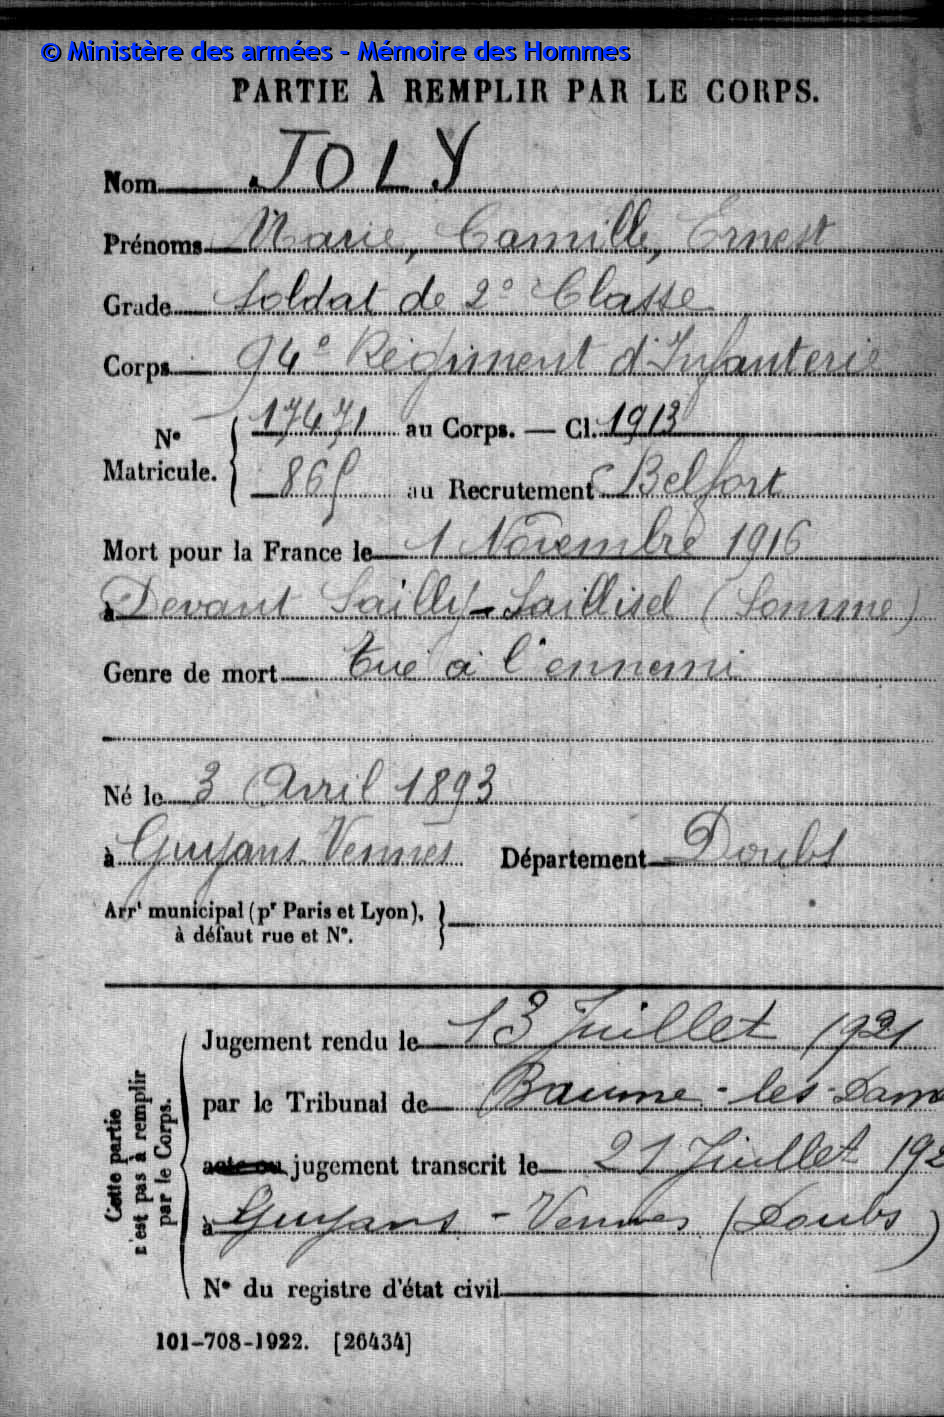 © Ministère des armées - Mémoire des Hommes
PARTIE À REMPLIR PAR LE CORPS.
Nom JOLY
Prénoms Marie, Camille, Ernest
Grade Soldat de 2e Classe
Corps 94e Régiment d'Infanterie
N° Matricule. { 17471 au Corps. — Cl. 1913
865 au Recrutement Belfort
Mort pour la France le 1 Novembre 1916
à Devant Sailly-Saillisel (Somme)
Genre de mort Tué à l'ennemi
Né le 3 Avril 1893
à Guyans Vennes Département Doubs
Arrt municipal (pr Paris et Lyon), }
à défaut rue et N°.
Cette partie n'est pas à remplir par le Corps.
Jugement rendu le 13 Juillet 1921
par le Tribunal de Baume-les-Dam
acte ou jugement transcrit le 21 Juillet 192
à Guyans-Vennes (Doubs)
N° du registre d'état civil
101-708-1922. [26434]